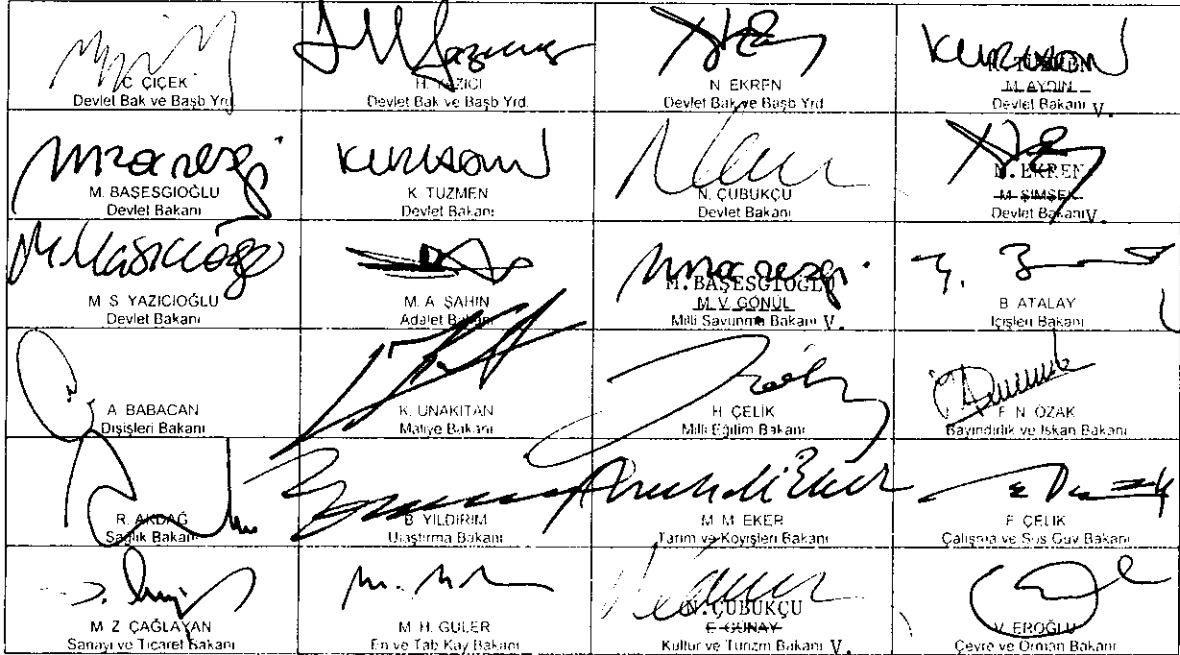 C. ÇİÇEK
Devlet Bak ve Başb Yrd.
H. YAZICI
Devlet Bak ve Başb Yrd.
N EKREN
Devlet Bak ve Başb Yrd
K. TÜZMEN
M. AYDIN
Devlet Bakanı V.
M. BAŞESGİOĞLU
Devlet Bakanı
K TÜZMEN
Devlet Bakanı
N. ÇUBUKÇU
Devlet Bakanı
N. EKREN
M ŞİMŞEK
Devlet Bakanı V.
M S YAZICIOĞLU
Devlet Bakanı
M. A ŞAHİN
Adalet Bakanı
M. BAŞESGİOĞLU
M. V. GÖNÜL
Milli Savunma Bakanı V.
B ATALAY
İçişleri Bakanı
A BABACAN
Dışişleri Bakanı
K. UNAKITAN
Maliye Bakanı
H ÇELİK
Milli Eğitim Bakanı
F N ÖZAK
Bayındırlık ve İskan Bakanı
R. AKDAĞ
Sağlık Bakanı
B YILDIRIM
Ulaştırma Bakanı
M M EKER
Tarım ve Köyişleri Bakanı
F ÇELİK
Çalışma ve Sos Güv Bakanı
M Z ÇAĞLAYAN
Sanayi ve Ticaret Bakanı
M H GÜLER
En ve Tab Kay Bakanı
N. ÇUBUKÇU
E GÜNAY
Kültür ve Turizm Bakanı V.
V EROĞLU
Çevre ve Orman Bakanı